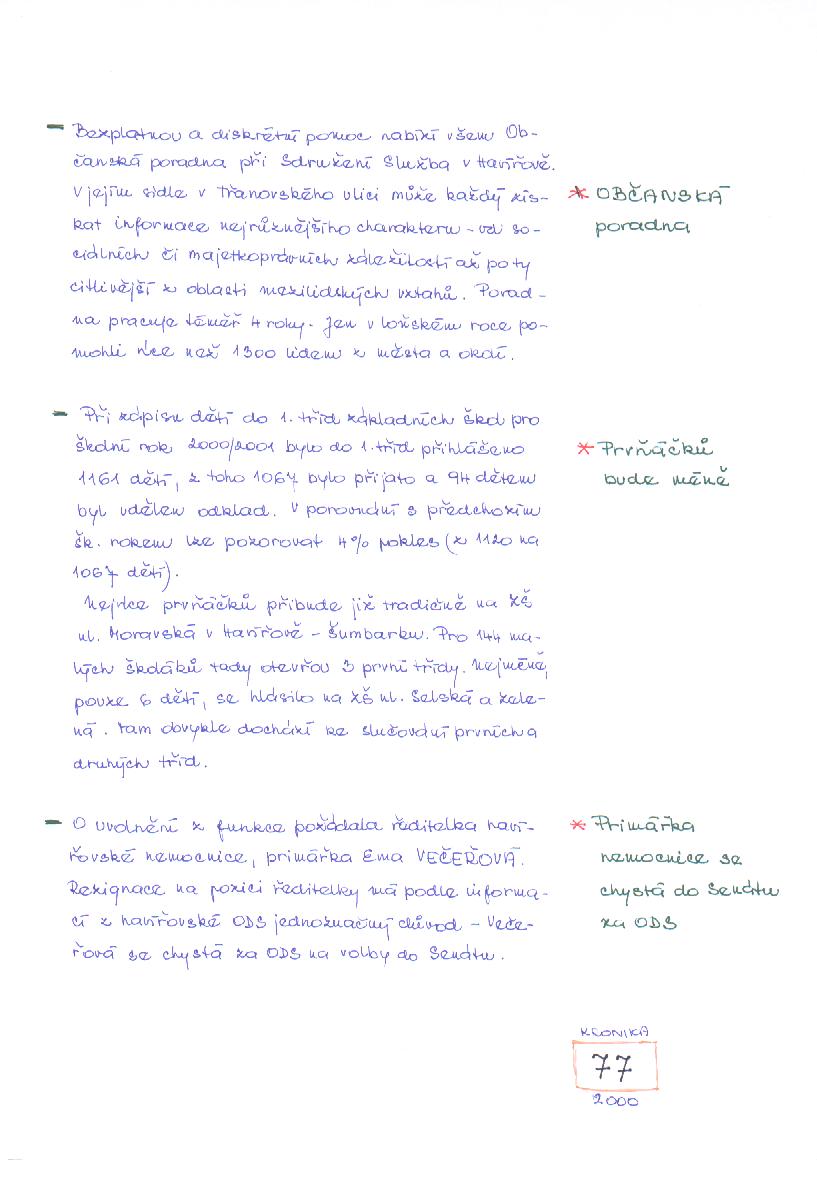 - Bezplatnou a diskrétní pomoc nabízí všem Ob-
čanská poradna při Sdružení Služba v Havířově.
V jejím sídle v Třanovského ulici může každý zís-
kat informace nejrůznějšího charakteru - od so-
ciálních či majetkoprávních záležitostí až po ty
citlivější z oblasti mezilidských vztahů. Porad-
na pracuje téměř 4 roky. Jen v loňském roce po-
mohli více než 1300 lidem z města a okolí.
* OBČANSKÁ
poradna
- Při zápisu dětí do 1. tříd základních škol pro
školní rok 2000/2001 bylo do 1. tříd přihlášeno
1161 dětí, z toho 1067 bylo přijato a 94 dětem
byl udělen odklad. V porovnání s předchozím
šk. rokem lze pozorovat 4% pokles (z 1120 na
1067 dětí).
Nejvíce prvňáčků přibude již tradičně na ZŠ
ul. Moravská v Havířově - Šumbarku. Pro 144 ma-
lých školáků tady otevřou 3 první třídy. Nejméně,
pouze 6 dětí, se hlásilo na ZŠ ul. Selská a Zele-
ná. Tam obvykle dochází ke slučování prvních a
druhých tříd.
* Prvňáčků
bude méně
- O uvolnění z funkce požádala ředitelka haví-
řovské nemocnice, primářka Ema VEČEŘOVÁ.
Rezignace na pozici ředitelky má podle informa-
cí z havířovské ODS jednoznačný důvod - Veče-
řová se chystá za ODS na volby do Senátu.
* Primářka
nemocnice se
chystá do Senátu
za ODS
KRONIKA
77
2000